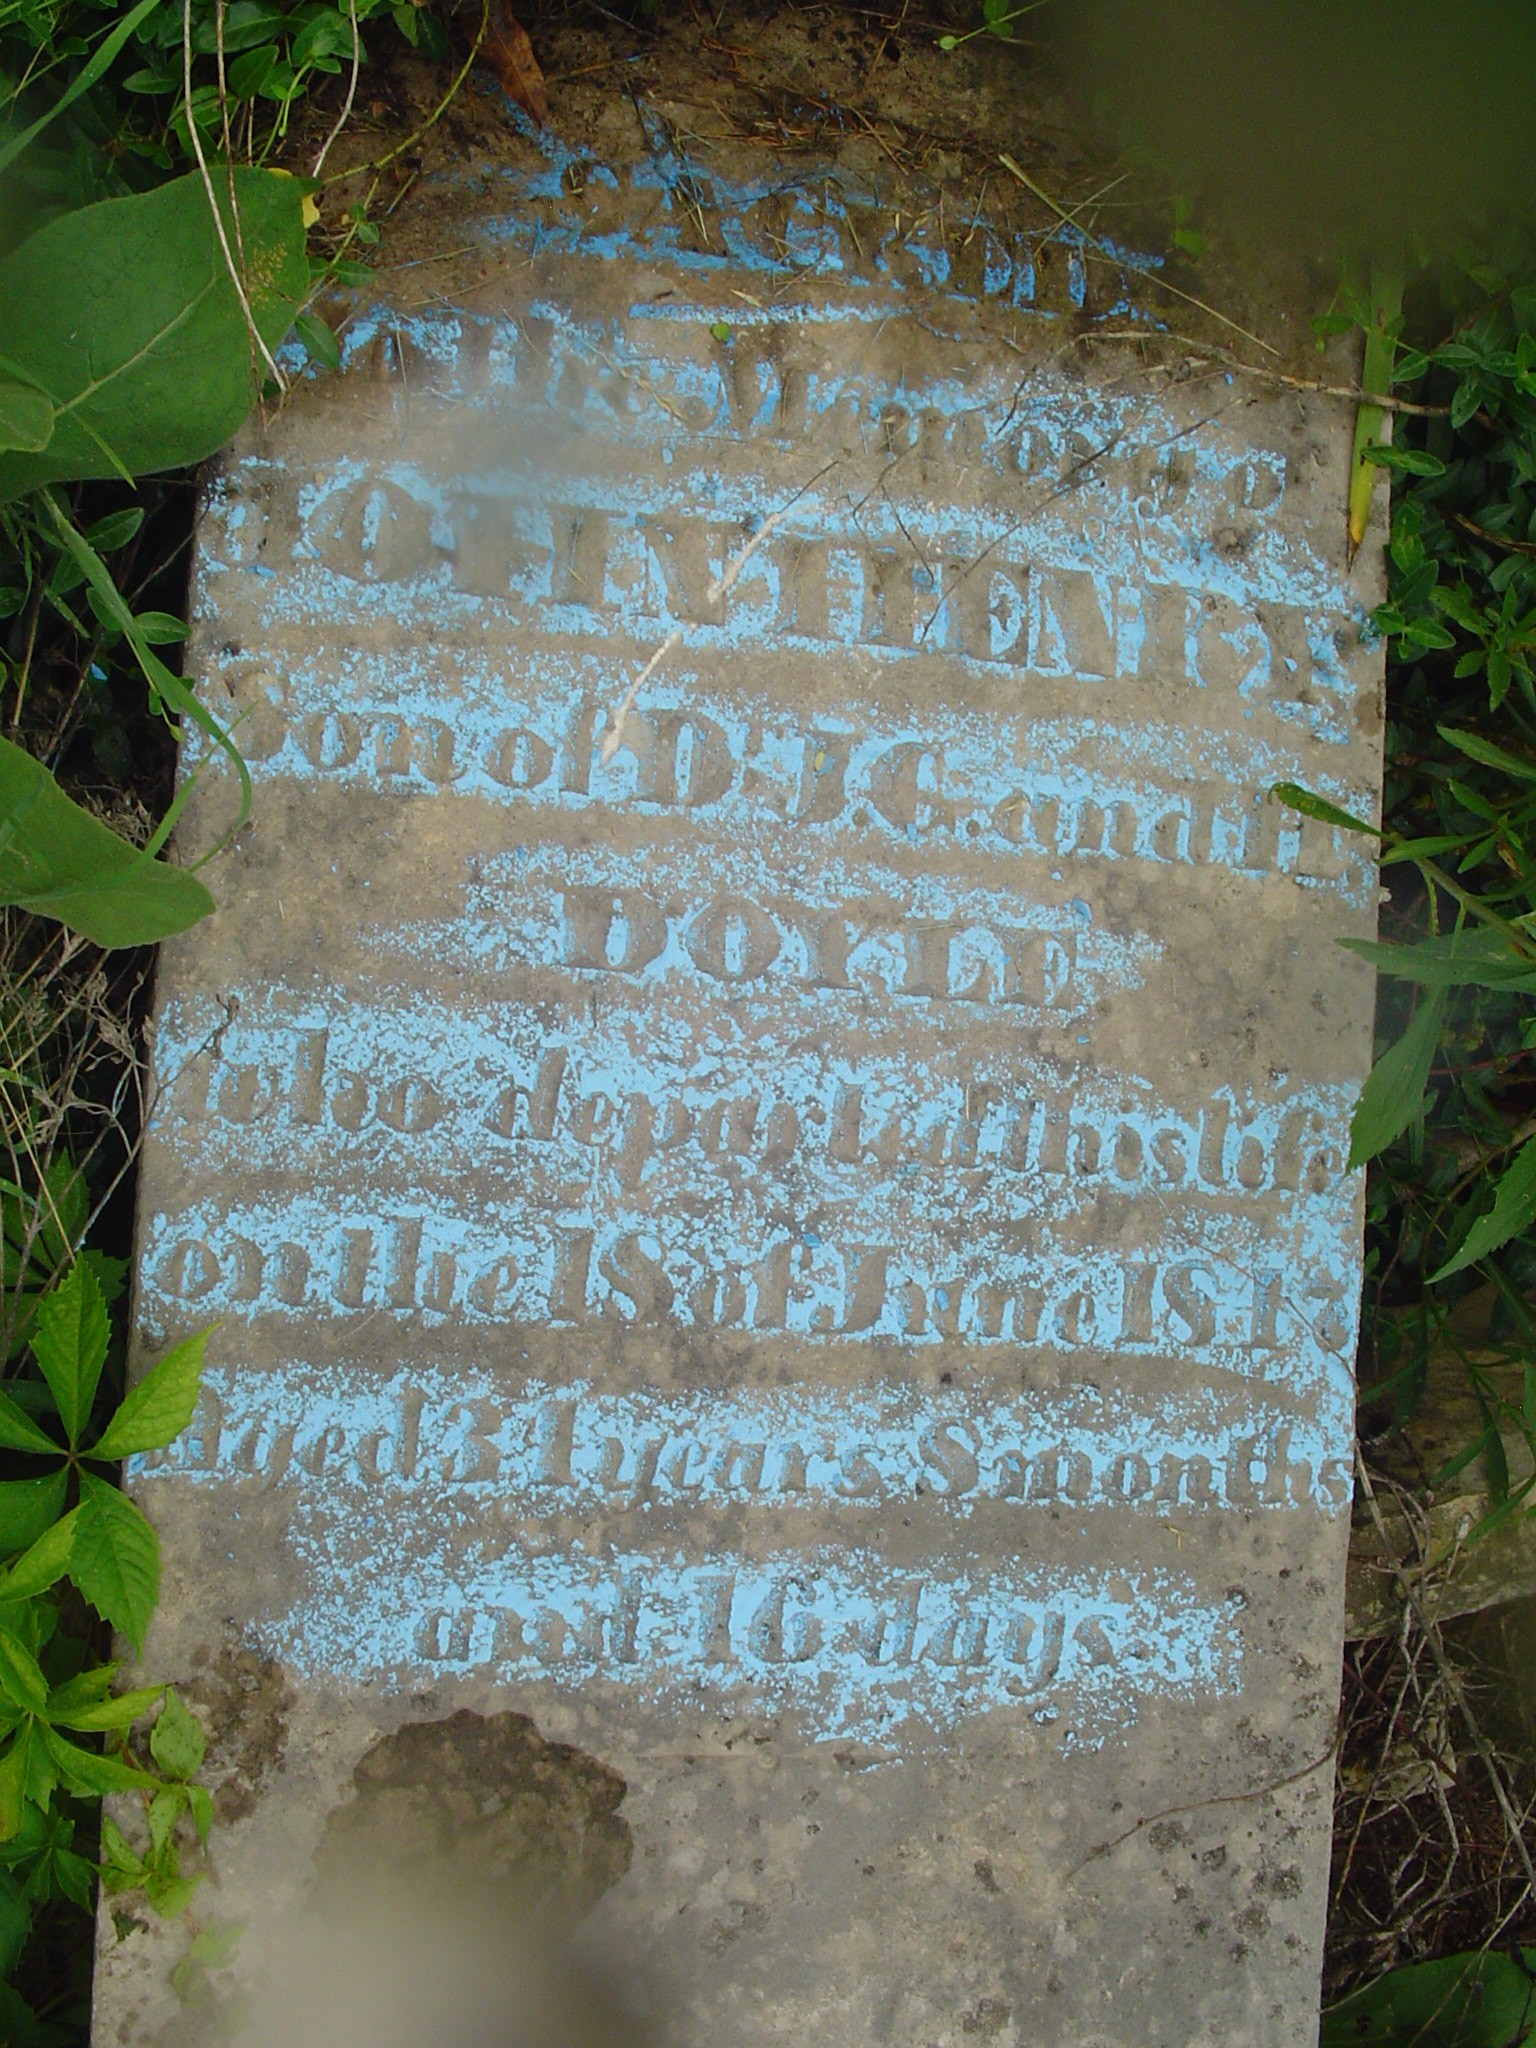 SACRED
To the Memory of
JOHN HENRY
Son of D. J. C. and
DOYLE
who departed this life
on the 18 of June
Aged years 8 months
and 16 days.